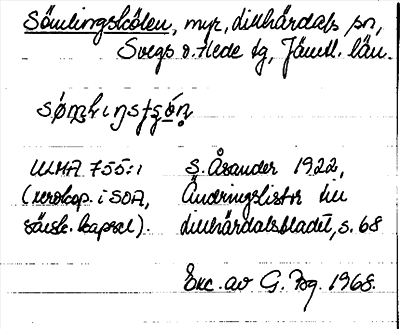 Sömlingskölen, myr, Lillhärdals sn,
Svegs o. Hede tg, Jämtl. län.
ULMA 755:1 S. Åsander 1922,
(xerokop. i SOA, Ändringslistor till
särsk. kapsel). Lillhärdalsbladet, s. 68
Exc. av G. Bg. 1968.